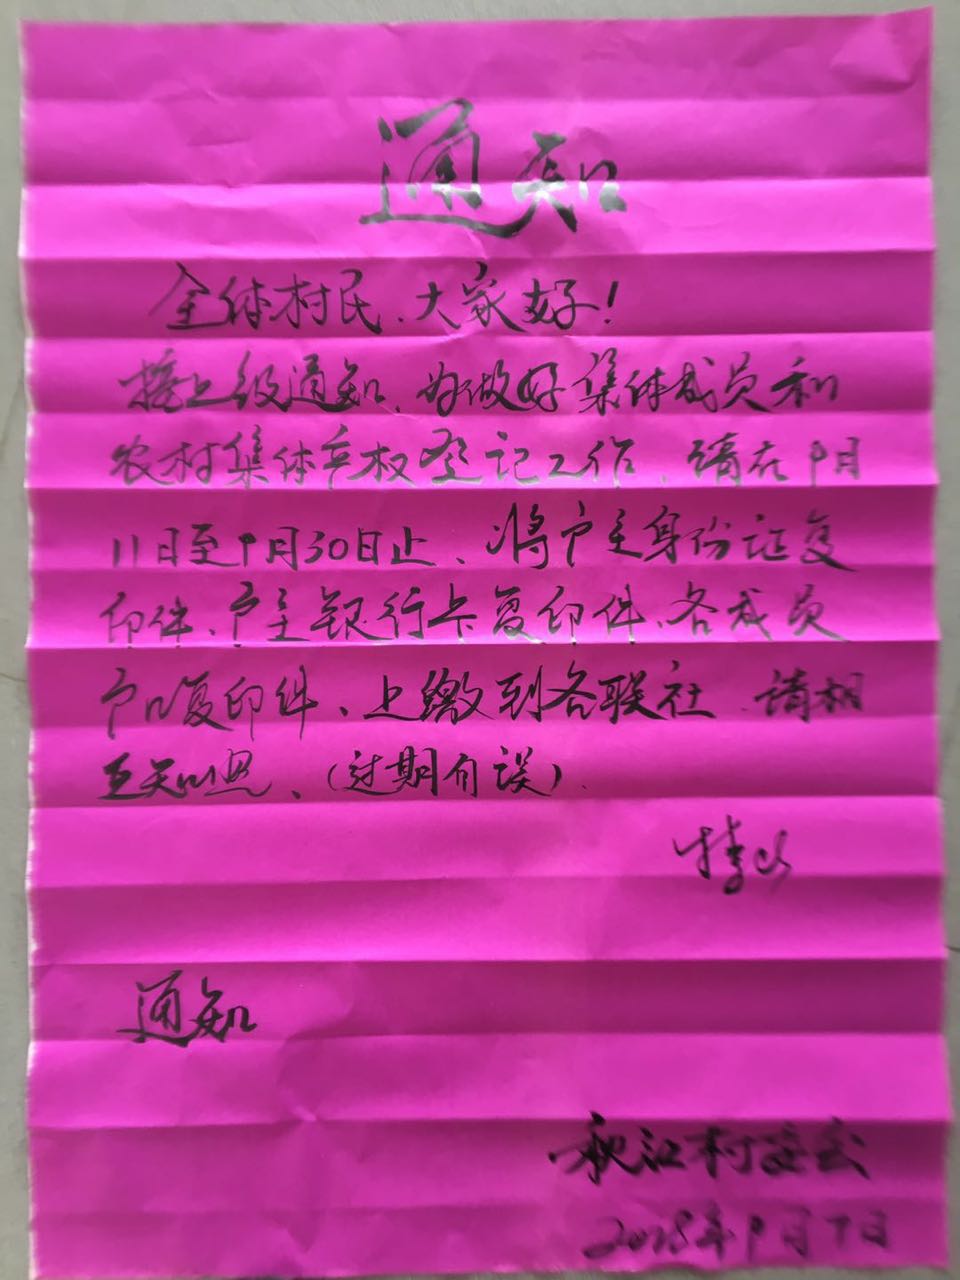 通知
全体村民、大家好！
接上级通知、为做好集体成员和
农村集体产权登记工作、请在9月
11日至9月30日止、将户主身份证复
印件、户主银行卡复印件、各成员
户口复印件、上缴到各联社、请相
互知照、（过期自误）.
特此
通知
秋江村委会
2018年9月7日